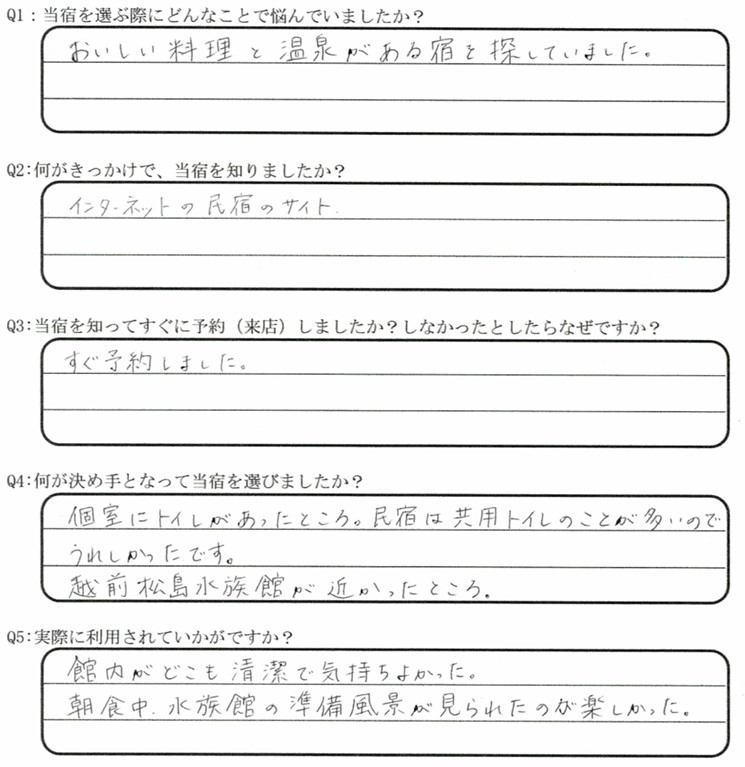 Q1：当宿を選ぶ際にどんなことで悩んでいましたか？
おいしい料理と温泉がある宿を探していました。
Q2：何がきっかけで、当宿を知りましたか？
インターネットの民宿のサイト.
Q3：当宿を知ってすぐに予約（来店）しましたか？しなかったとしたらなぜですか？
すぐ予約しました。
Q4：何が決め手となって当宿を選びましたか？
個室にトイレがあったところ。民宿は共用トイレのことが多いので
うれしかったです。
越前松島水族館が近かったところ.
Q5：実際に利用されていかがですか？
館内がどこも清潔で気持ちよかった。
朝食中.水族館の準備風景が見られたのが楽しかった。